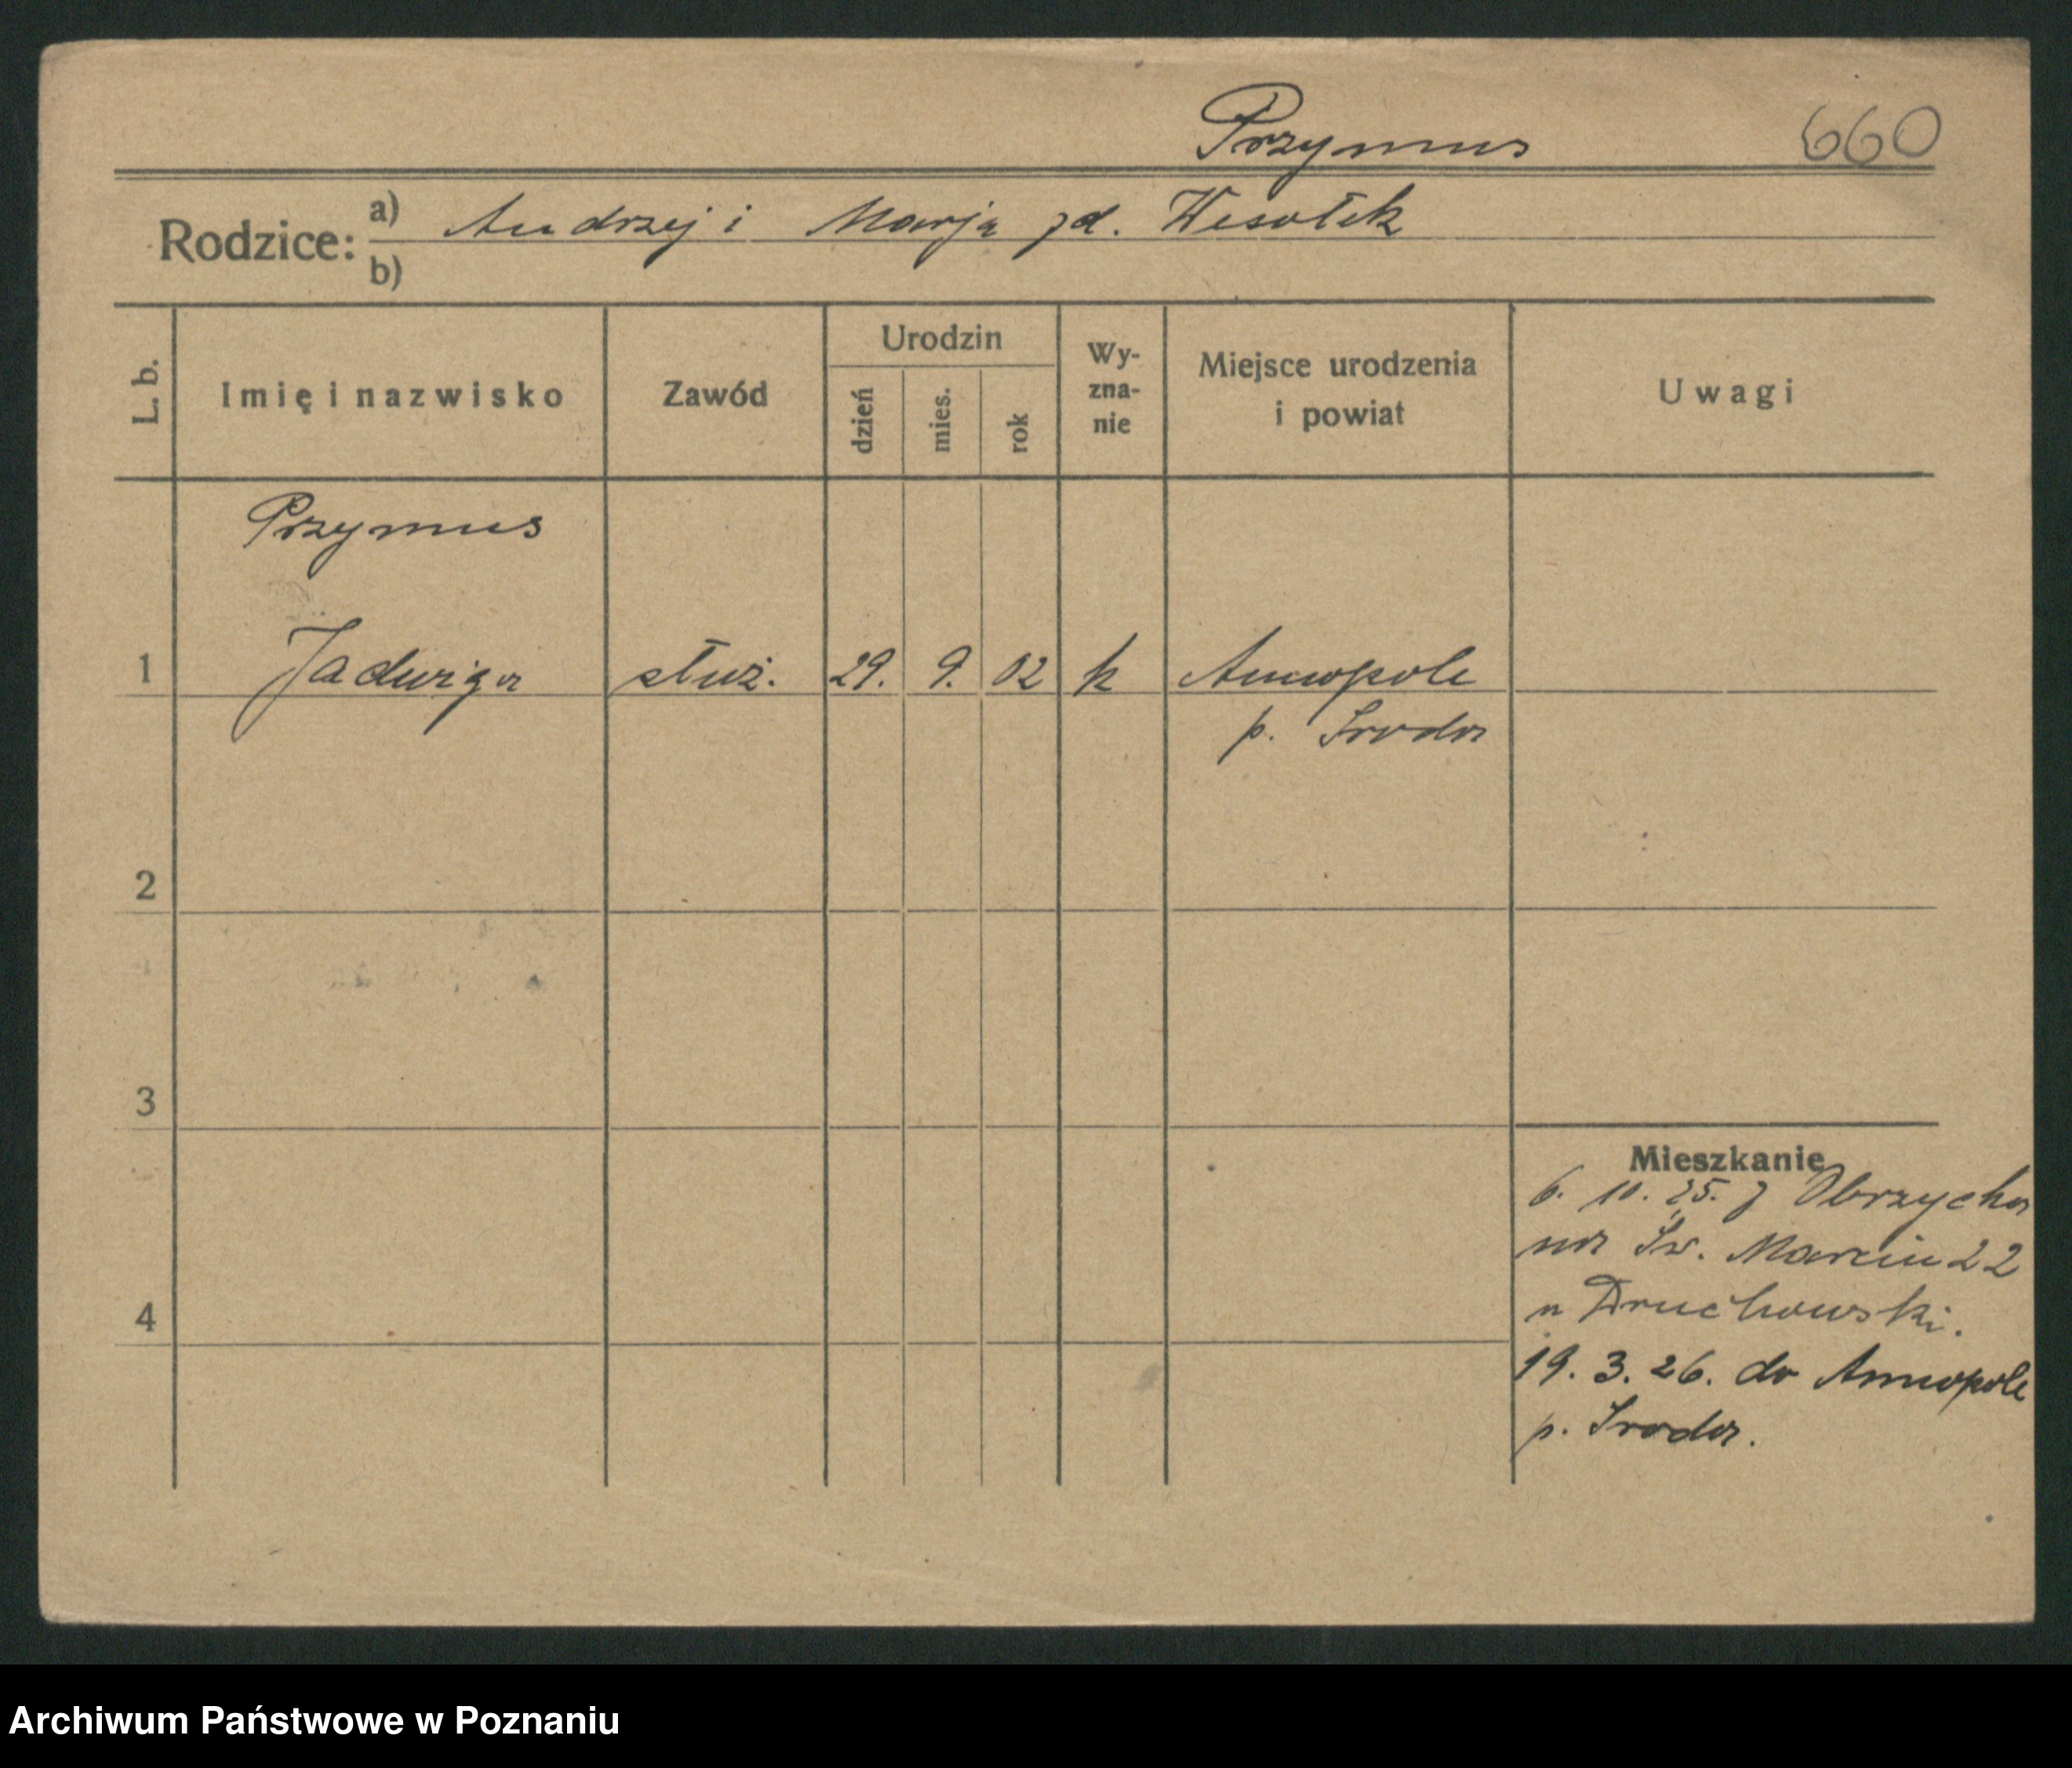 Przymus 660
Rodzice: a) Andrzej i Marja zd. Wesołek
b)
L. b. Imię i nazwisko Zawód Urodzin dzień mies. rok Wy-zna-nie Miejsce urodzenia i powiat Uwagi
Przymus
1 Jadwiga służ. 29. 9. 02 k Annopole
p. Środa
2
3
4
Mieszkanie
6. 10. 25. z Obrzycka
na Św. Marcin 22
u Druchowski.
19. 3. 26. do Annopole
p. Środa.
Archiwum Państwowe w Poznaniu